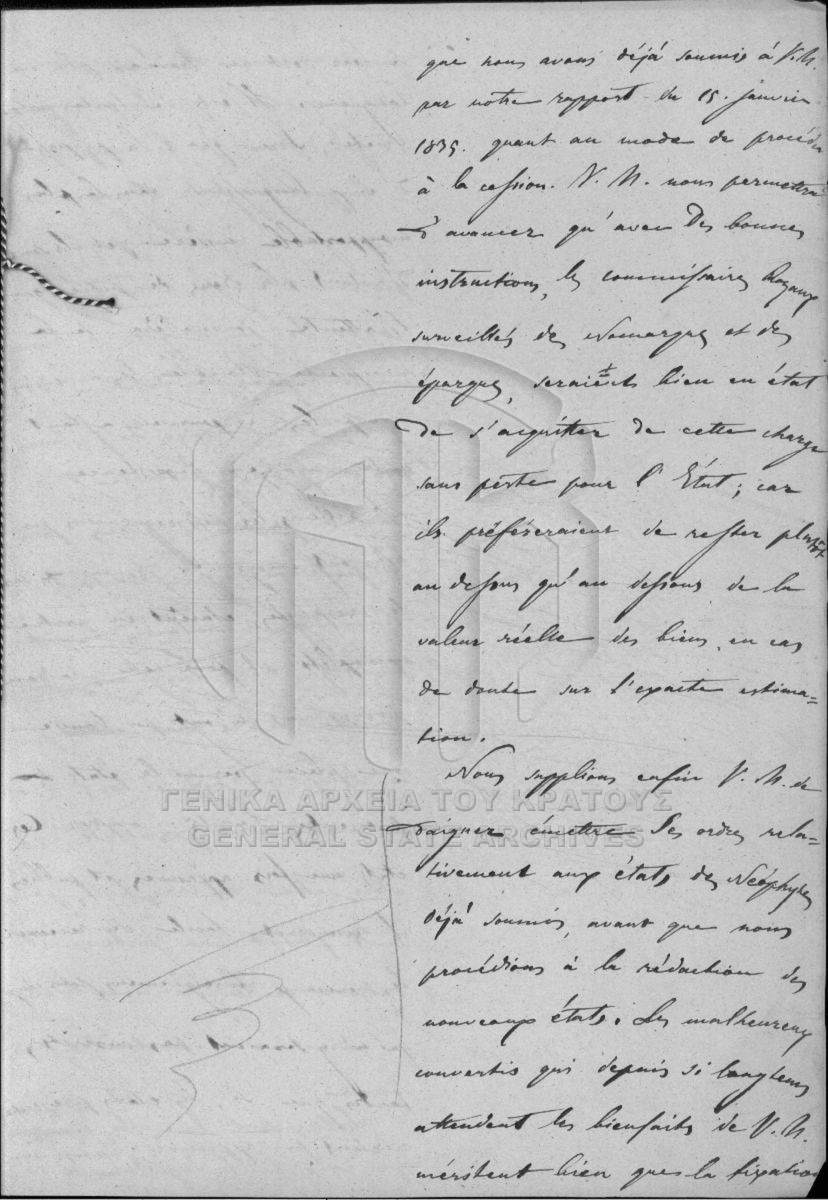 que nous avons déjà soumis à V. M.
par notre rapport du 15. Janvier
1835. quant au mode de procéder
à la cession. V. M. nous permettra
d'avancer qu'avec des bonnes
instructions, les commissaires Royaux
surveillés des Nomarques et des
éparques, seraient bien en état
de s'acquitter de cette charge
sans perte pour l'État; car
ils préféreraient de rester plutôt
au dessus qu'au dessous de la
valeur réelle des biens, en cas
de doute sur l'exacte estima=
tion.
Nous supplions enfin V. M. de
daigner émettre Ses ordres rela=
tivement aux états des Néophytes
déjà soumis, avant que nous
procédions à la rédaction des
nouveaux états. Les malheureux
convertis qui depuis si longtems
attendent les bienfaits de V. M.
méritent bien que la fixation
ΓΕΝΙΚΑ ΑΡΧΕΙΑ ΤΟΥ ΚΡΑΤΟΥΣ
GENERAL STATE ARCHIVES